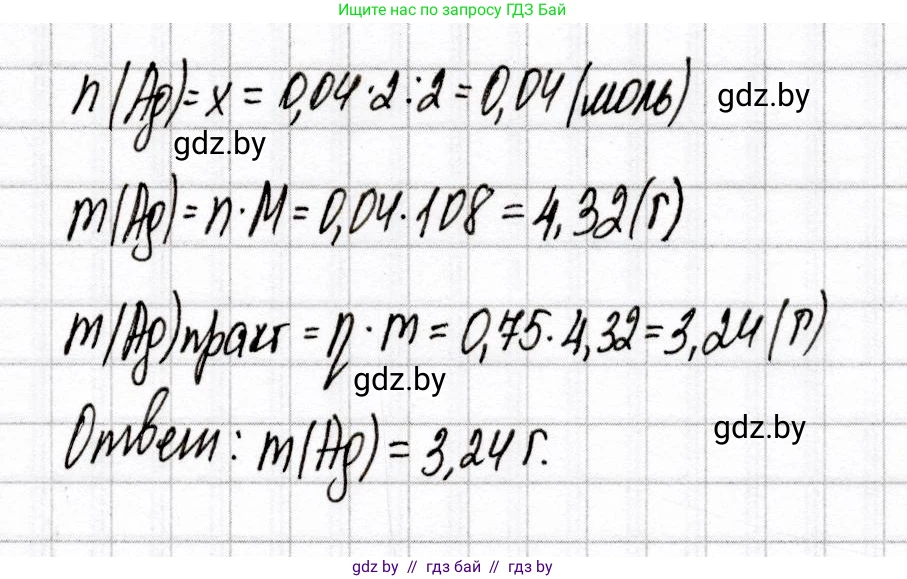 Ищите нас по запросу ГДЗ Бай
n(Ag)= x = 0,04·2:2 = 0,04 (моль) gdz.by
gdz.by
m(Ag) = n·M = 0,04·108 = 4,32(г)
m(Ag)практ = η·m = 0,75·4,32 = 3,24 (г)
gdz.by
Ответ: m(Ag) = 3,24 г. gdz.by
gdz by // гдз бай // гдз by